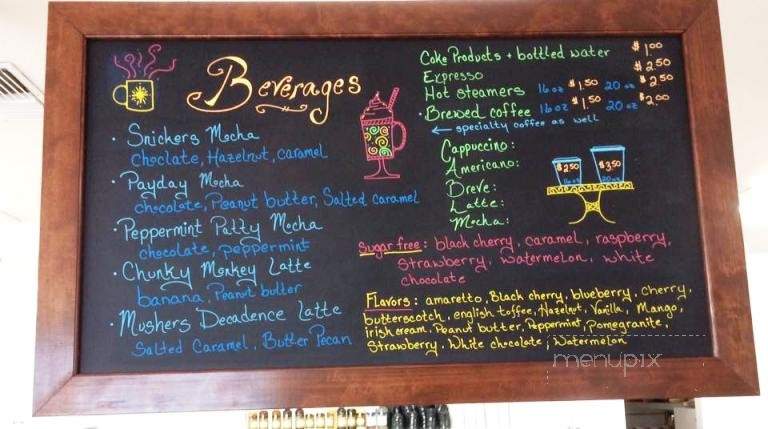 Beverages
· Snickers Mocha
Choclate, Hazelnut, caramel
· Payday Mocha
chocolate, Peanut butter, Salted caramel
· Peppermint Patty Mocha
chocolate, peppermint
· Chunky Monkey Latte
banana, Peanut butter
· Mushers Decadence Latte
Salted Caramel, Butter Pecan
Coke Products + bottled water $1.00
Expresso $2.50
Hot steamers 16 oz $1.50 20 oz $2.50
· Brewed coffee 16 oz $1.50 20 oz $2.00
← specialty coffee as well
Cappuccino:
Americano:
Breve:
Latte:
Mocha:
$2.50 $3.50
16oz 20oz
Sugar free: black cherry, caramel, raspberry,
Strawberry, watermelon, white
chocolate
Flavors: amaretto, Black cherry, blueberry, cherry,
butterscotch, english toffee, Hazelnut, Vanilla, Mango,
irish cream, Peanut butter, Peppermint, Pomegranite,
Strawberry, White chocolate, Watermelon
menupix